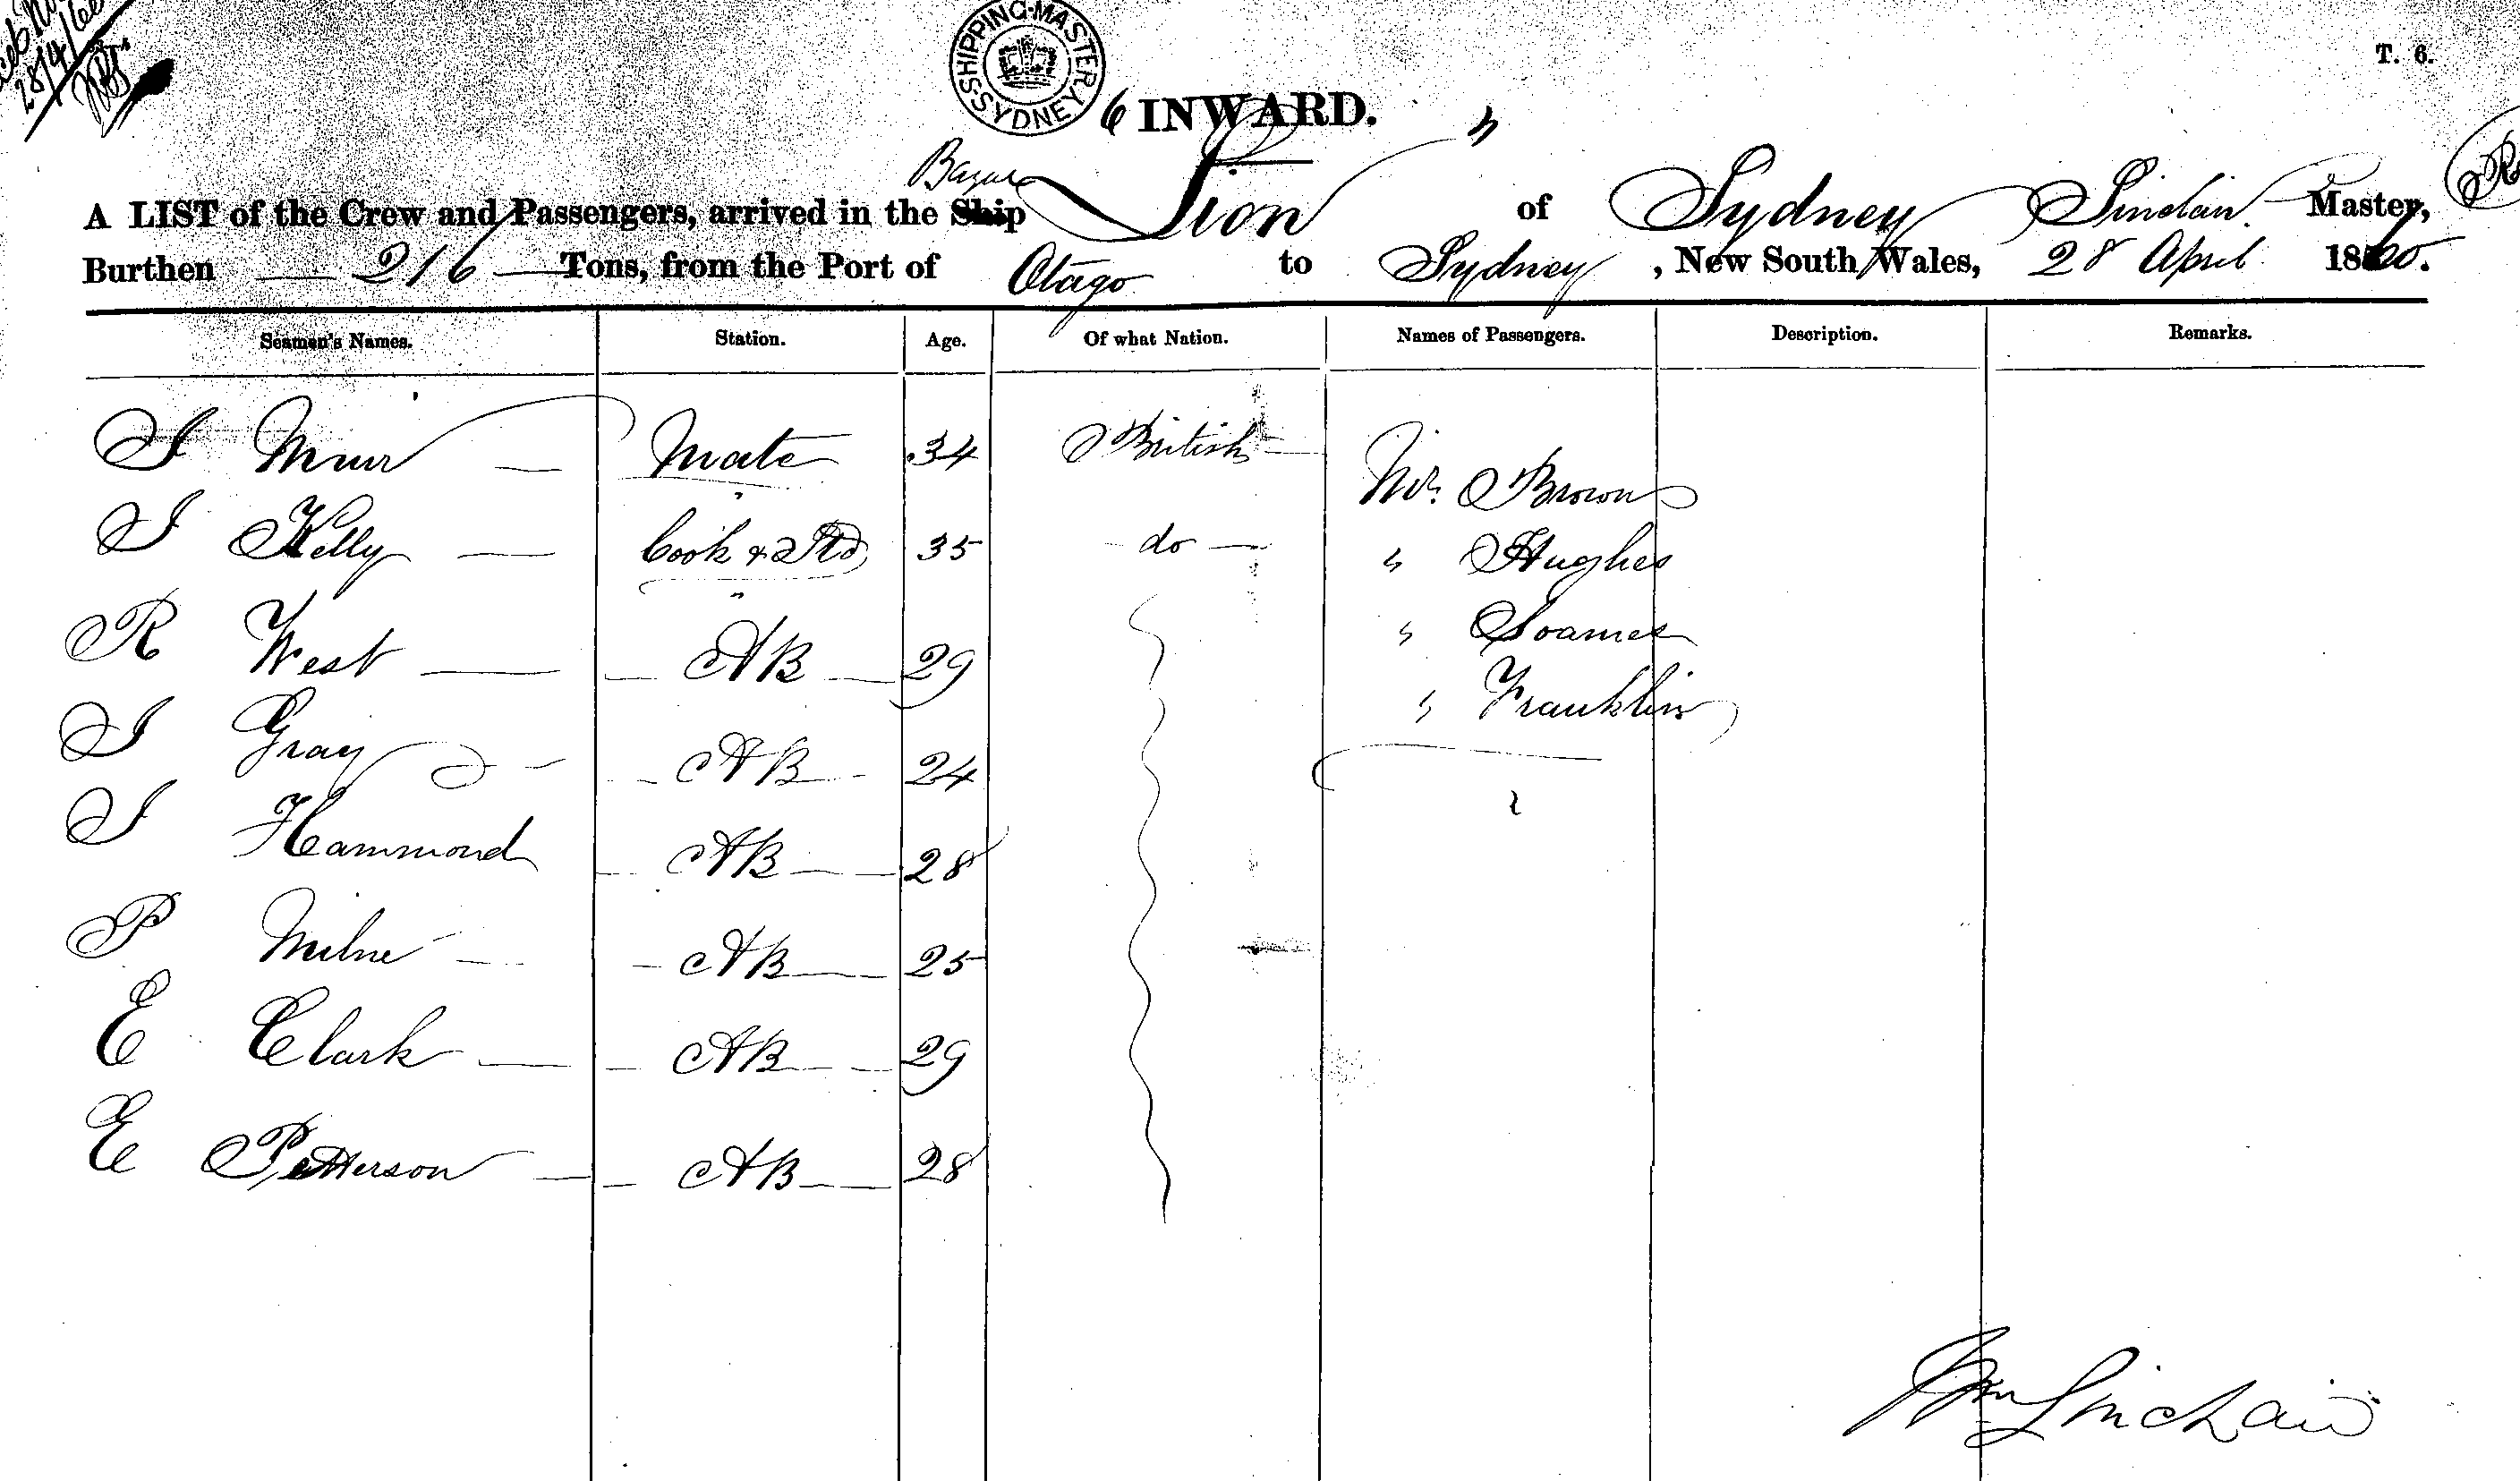 28/4/60
SHIPPING·MASTER
SYDNEY
T. 6.
6 INWARD.
Barque
A LIST of the Crew and Passengers, arrived in the Ship Lion " of Sydney Sinclair Master,
Burthen 216 Tons, from the Port of Otago to Sydney, New South Wales, 28 April 1860.
Seamen's Names. Station. Age. Of what Nation. Names of Passengers. Description. Remarks.
J Muir — Mate 34 British — Mr. Brown
J Kelly — Cook & Std 35 — do — " Hughes
R West — AB — 29 " Soames
J Gray — AB — 24 " Franklin
J Hammond — AB — 28
P Milne — AB — 25
E Clark — AB — 29
E Petterson — AB — 28
Wm Sinclair